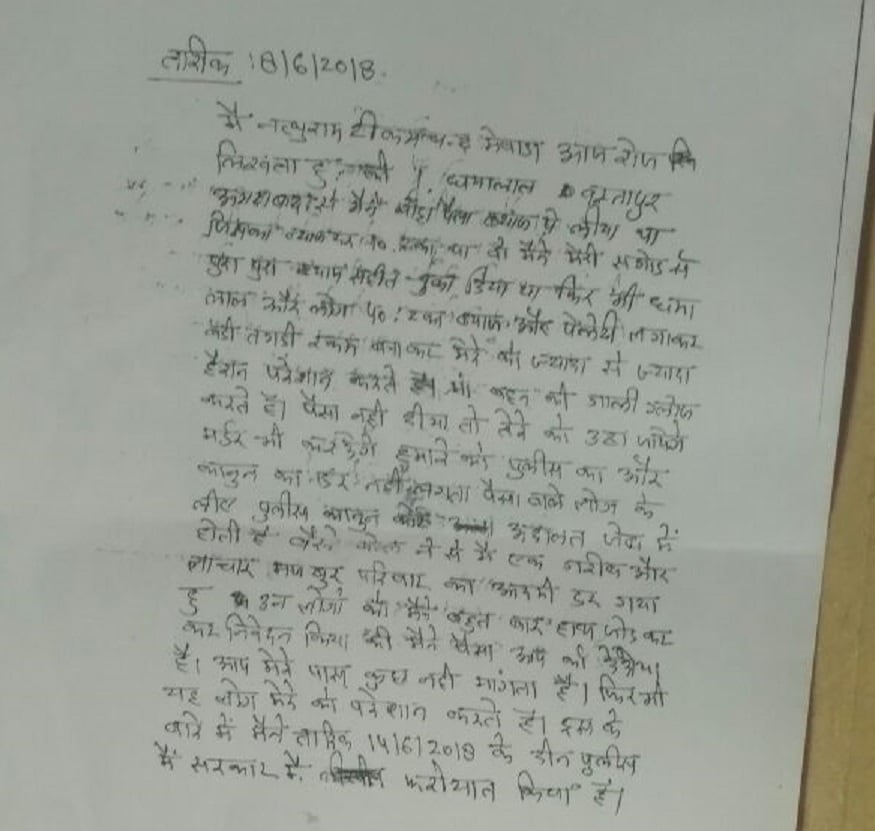 तारीक 18/6/2018.
मै नत्थुराम टीकमचन्द मेवाडा आप रोज
लिखता हु की धमालाल वस्तापुर
से मैने थोडा पैसा ब्याज पे लीया था
जिसका ब्याज दर १०. टका था वो मैने मेरी
पुरा पुरा ब्याज सहीत चुका दिया था फिर भी धमा
लाल और लोग ५०: टका ब्याज और पेनल्टी लगाकर
बडी तगडी रकम बनाकर मेरे को ज्यादा से ज्यादा
हैरान परेशान करते है मां बहन की गाली गलोच
करते है। पैसा नही दीया तो तेरे को उठा जायेगे
मर्डर भी करदेगे हमारे को पुलीस का और
कानुन का डर नही लगता पैसा वाले लोग के
लीए पुलीस कानुन अदालत जेब में
होती है वैसे बोल ने से मै एक गरीब और
लाचार मजबुर परिवार का आदमी डर गया
हु उन लोगो को मैने बहुत बार हाथ जोड कर
कर निवेदन किया की मैने पैसा आप को देदिया
है। आप मेरे पास कुछ नही मांगता है। फिर भी
यह लोग मेरे को परेशान करते है। इस के
बारे में मैने तारिक 14/6/2018 के दीन पुलीस
मैं सरकार मै. फरीयाद किया है।